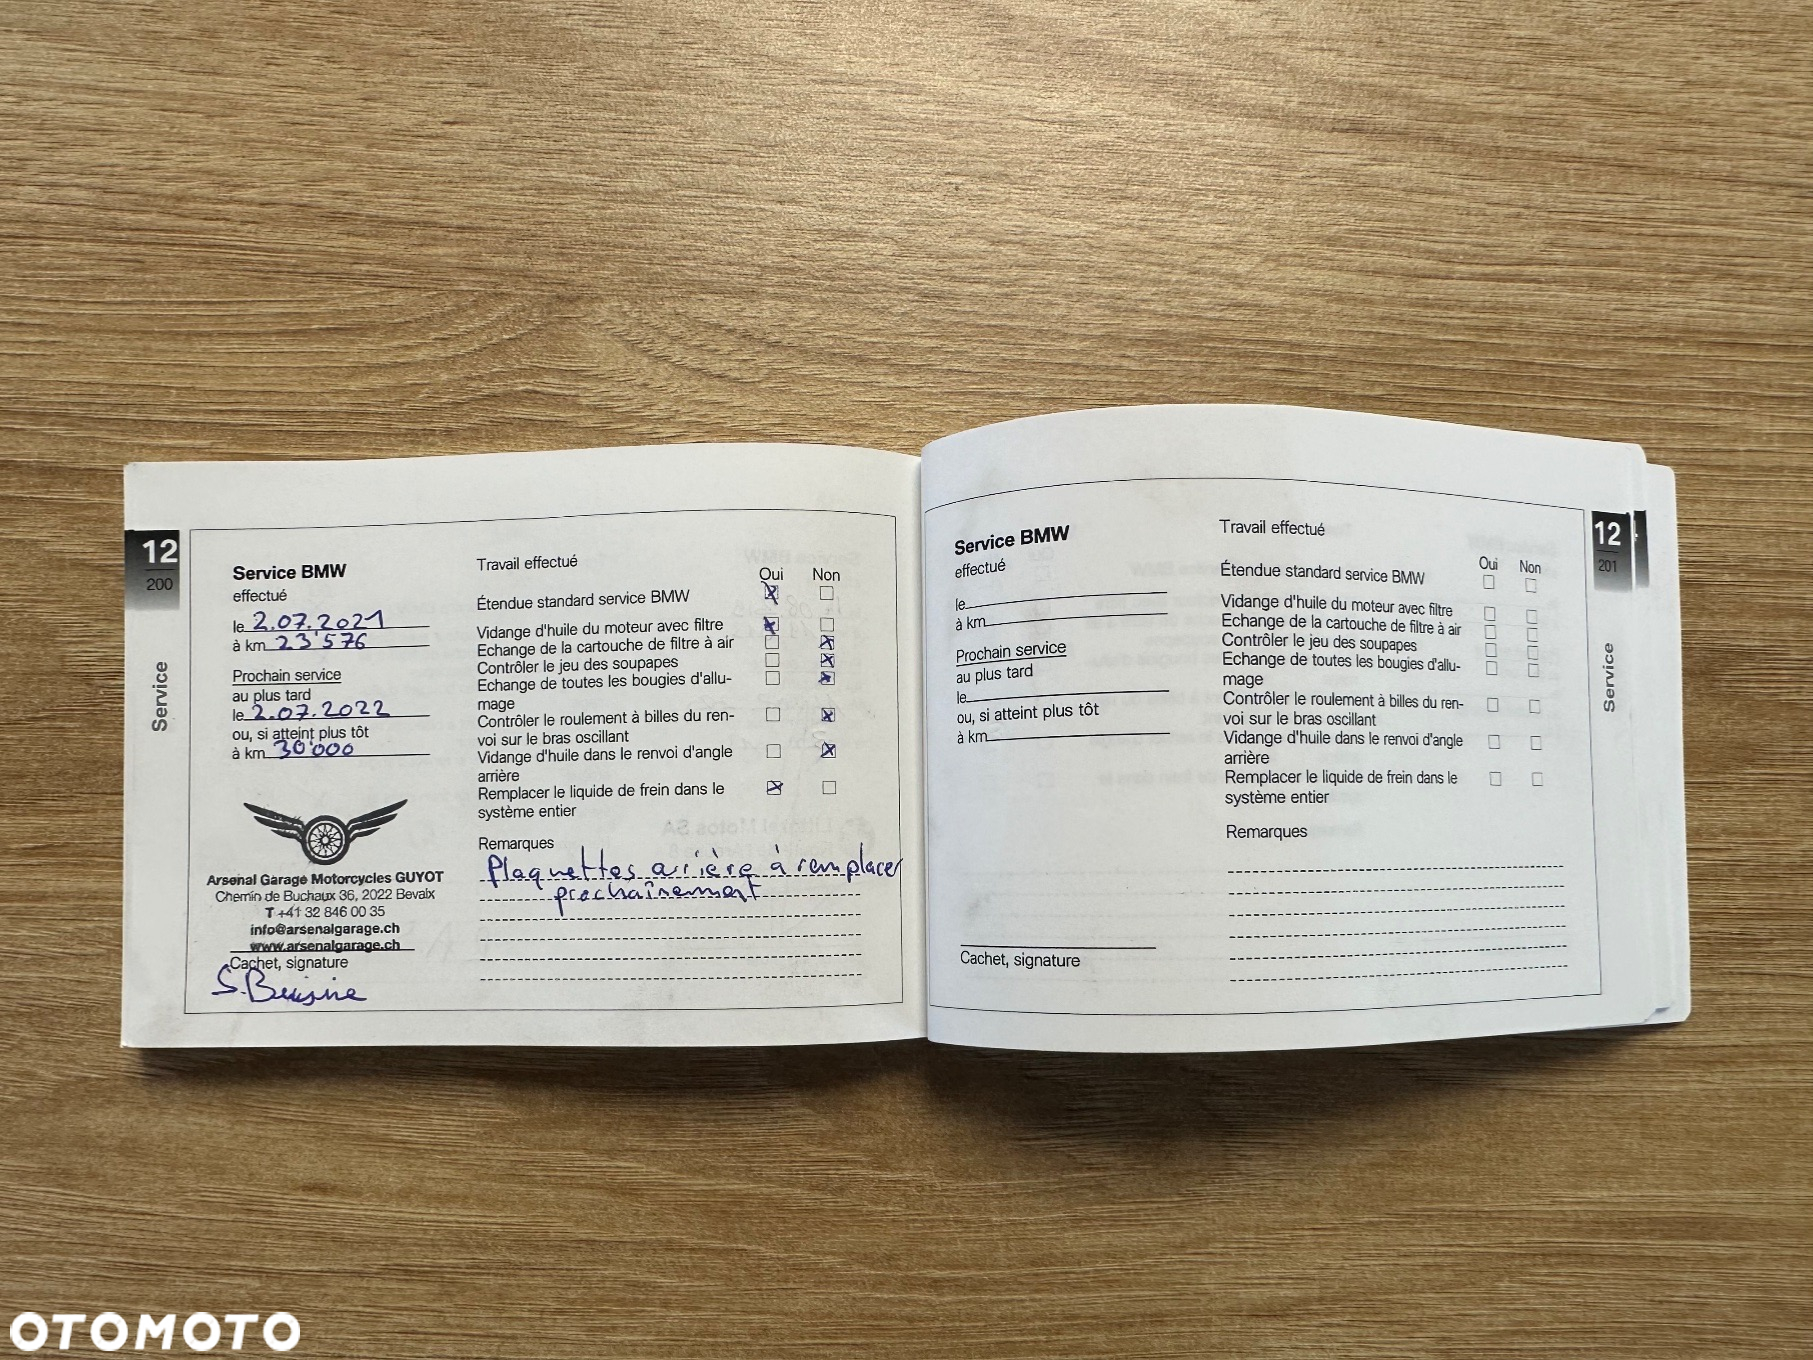 12
200
Service
Service BMW
effectué
le 2.07.2021
à km 23'576
Prochain service
au plus tard
le 2.07.2022
ou, si atteint plus tôt
à km 30'000
Arsenal Garage Motorcycles GUYOT
Chemin de Buchaux 36, 2022 Bevaix
T +41 32 846 00 35
info@arsenalgarage.ch
www.arsenalgarage.ch
Cachet, signature
Travail effectué
Oui Non
Étendue standard service BMW
Vidange d'huile du moteur avec filtre
Echange de la cartouche de filtre à air
Contrôler le jeu des soupapes
Echange de toutes les bougies d'allu-
mage
Contrôler le roulement à billes du ren-
voi sur le bras oscillant
Vidange d'huile dans le renvoi d'angle
arrière
Remplacer le liquide de frein dans le
système entier
Remarques
Plaquettes arrière à remplacer
prochaînement
Service BMW
effectué
le
à km
Prochain service
au plus tard
le
ou, si atteint plus tôt
à km
Cachet, signature
Travail effectué
Oui Non
Étendue standard service BMW
Vidange d'huile du moteur avec filtre
Echange de la cartouche de filtre à air
Contrôler le jeu des soupapes
Echange de toutes les bougies d'allu-
mage
Contrôler le roulement à billes du ren-
voi sur le bras oscillant
Vidange d'huile dans le renvoi d'angle
arrière
Remplacer le liquide de frein dans le
système entier
Remarques
12
201
Service
OTOMOTO